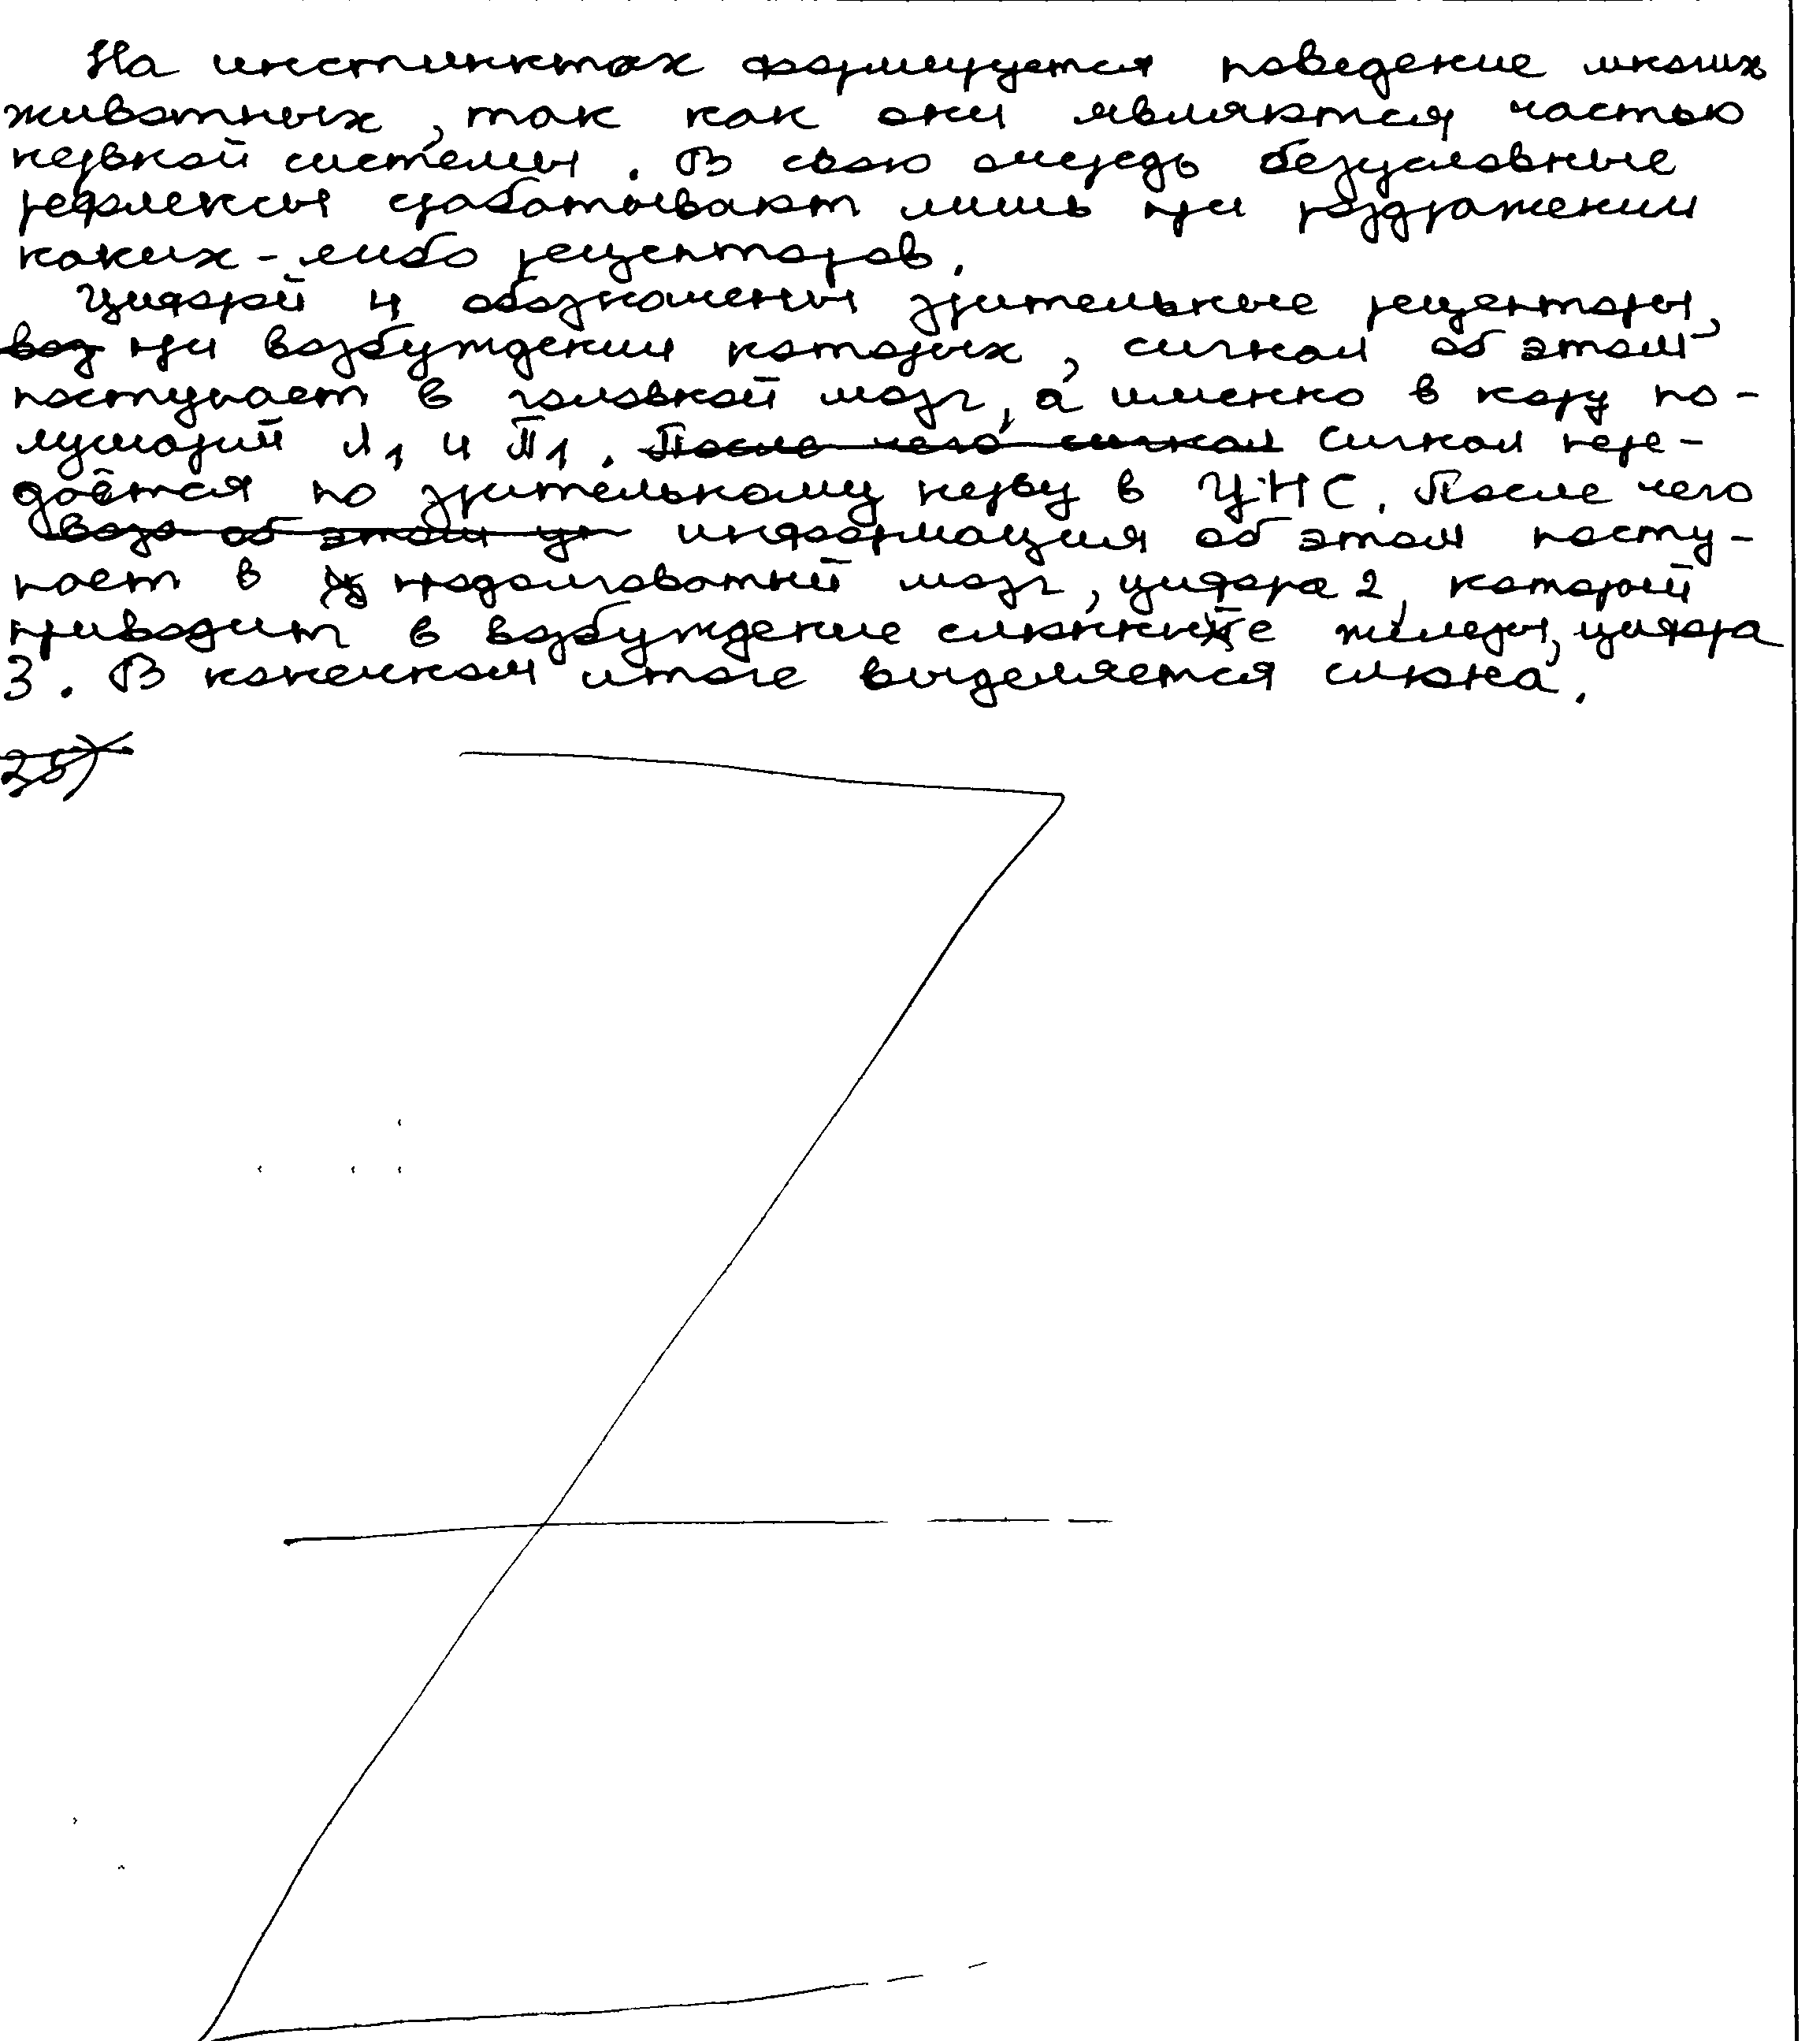 На инстинктах формируется поведение многих
животных, так как они являются частью
нервной системы. В свою очередь безусловные
рефлексы срабатывают лишь при раздражении
каких-либо рецепторов.
Цифрой 4 обозначены зрительные рецепторы,
воз при возбуждении которых, сигнал об этом
поступает в головной мозг, а именно в кору по-
лушарий Л1 и П1. После чего сигнал Сигнал пере-
даётся по зрительному нерву в ЦНС. После чего
об этом информация об этом посту-
пает в продолговатый мозг, цифра 2, который
приводит в возбуждение слюнные железы, цифра
3. В конечном итоге выделяется слюна.
25)